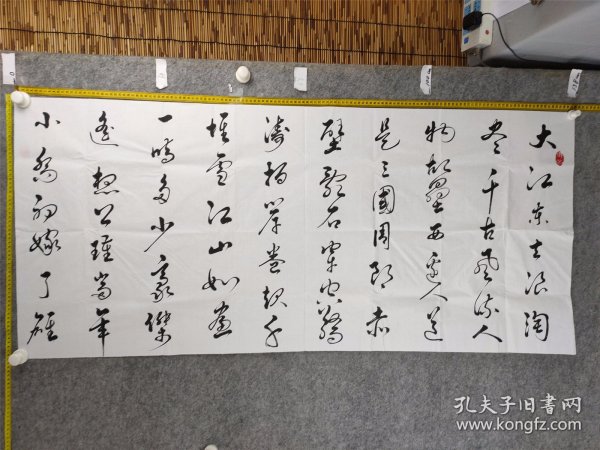 大江東去浪淘
尽千古風流人
物故壘西邊人道
是三國周郎赤
壁亂石穿空驚
濤拍岸卷起千
堆雪江山如畫
一時多少豪傑
遙想公瑾當年
小喬初嫁了雄
孔夫子旧书网
www.kongfz.com